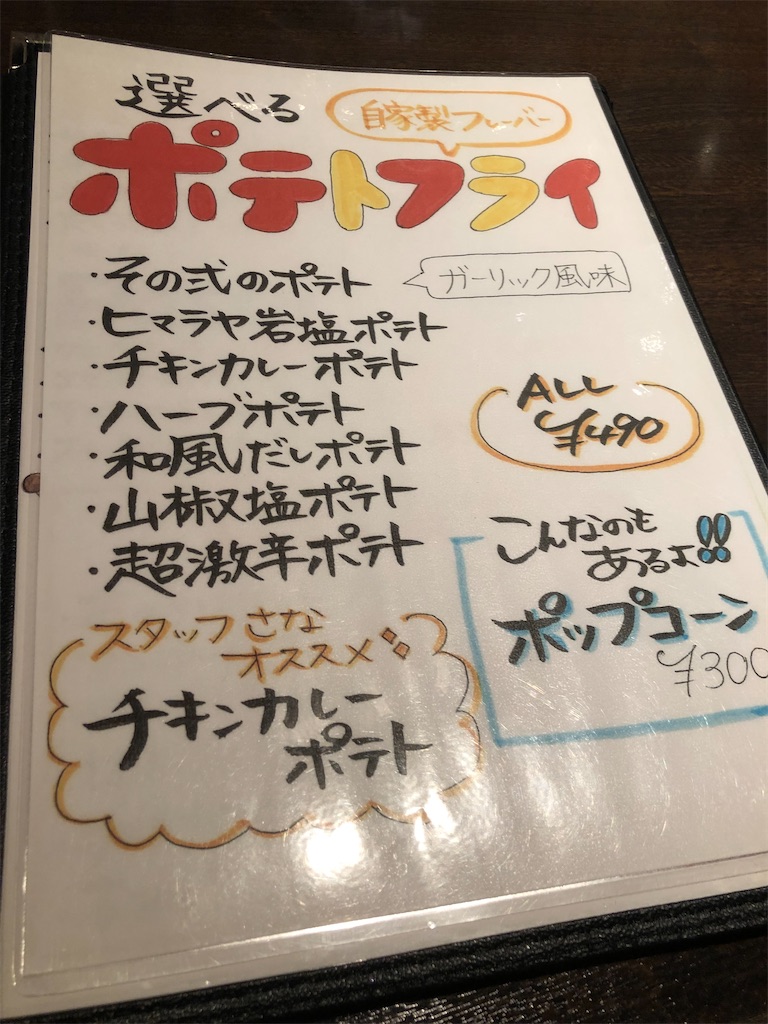 選べる
自家製フレーバー
ポテトフライ
・その弐のポテト
ガーリック風味
・ヒマラヤ岩塩ポテト
・チキンカレーポテト
・ハーブポテト
・和風だしポテト
・山椒塩ポテト
・超激辛ポテト
ALL
¥490
こんなのも
あるよ!!
ポップコーン
¥300
スタッフさな
オススメ
チキンカレー
ポテト